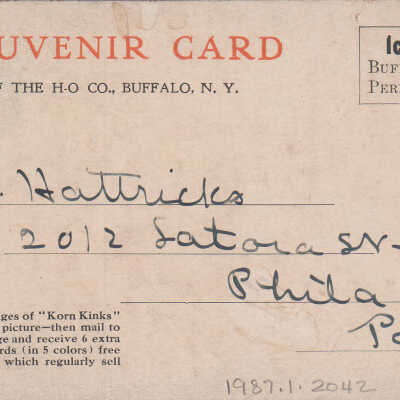 UVENIR CARD
1c
BUF
PER
F THE H-O CO., BUFFALO, N. Y.
. Hattricks
2012 Latona St.
Phila
Pa
ges of "Korn Kinks"
picture—then mail to
ge and receive 6 extra
rds (in 5 colors) free
which regularly sell
1987.1.2042